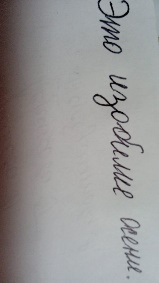 Это изобилие осени.